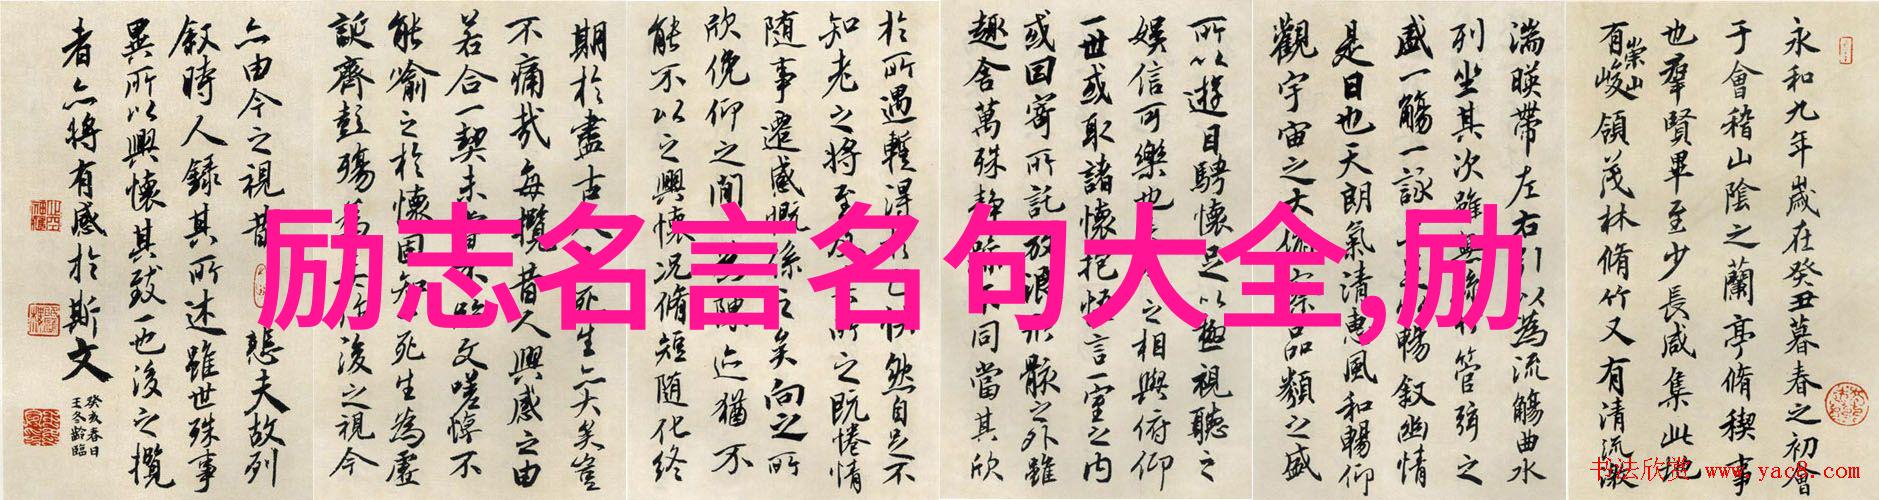 永和九年歲在癸丑暮春之初會
于會稽山陰之蘭亭脩稧事
也羣賢畢至少長咸集此地
有崇山峻領茂林脩竹又有清流激
湍暎帶左右引以為流觴曲水
列坐其次雖無絲竹管弦之
盛一觴一詠亦足以暢叙幽情
是日也天朗氣清惠風和暢仰
觀宇宙之大俯察品類之盛
所以遊目騁懷足以極視聽之
娛信可樂也夫人之相與俯仰
一世或取諸懷抱悟言一室之内
或因寄所託放浪形骸之外雖
趣舍萬殊静躁不同當其欣
於所遇蹔得於己怏然自足不
知老之將至及其所之既惓情
随事遷感慨係之矣向之所
欣俛仰之間以為陳迹猶不
能不以之興懷况脩短随化終
期於盡古人云死生亦大矣豈
不痛哉每攬昔人興感之由
若合一契未嘗不臨文嗟悼不
能喻之於懷固知一死生為虛
誕齊彭殤為妄作後之視今
亦由今之視昔悲夫故列
叙時人録其所述雖世殊事
異所以興懷其致一也後之攬
者亦將有感於斯文
癸亥春日
王冬齡臨
励志名言名句大全,励
书法欣赏 www.yac8.com